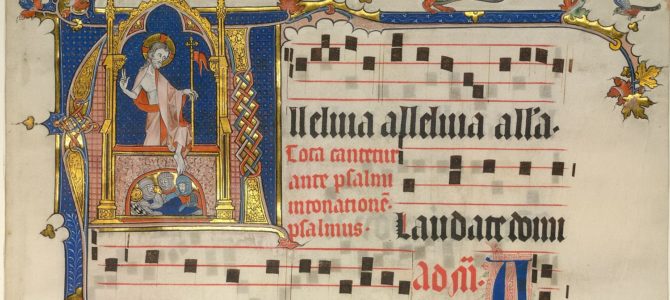 Alleluia alleluia alla.
Tota cantetur
ante psalmi
intonationē
psalmus. Laudate domi
A